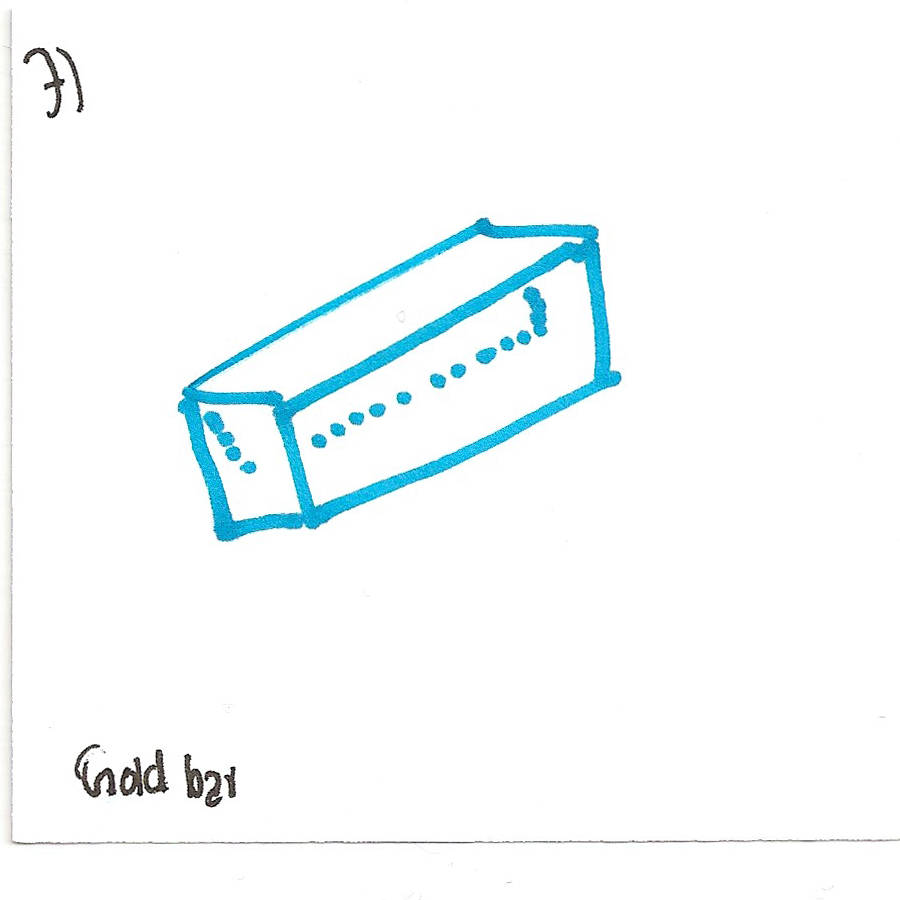 7)
Gold bar